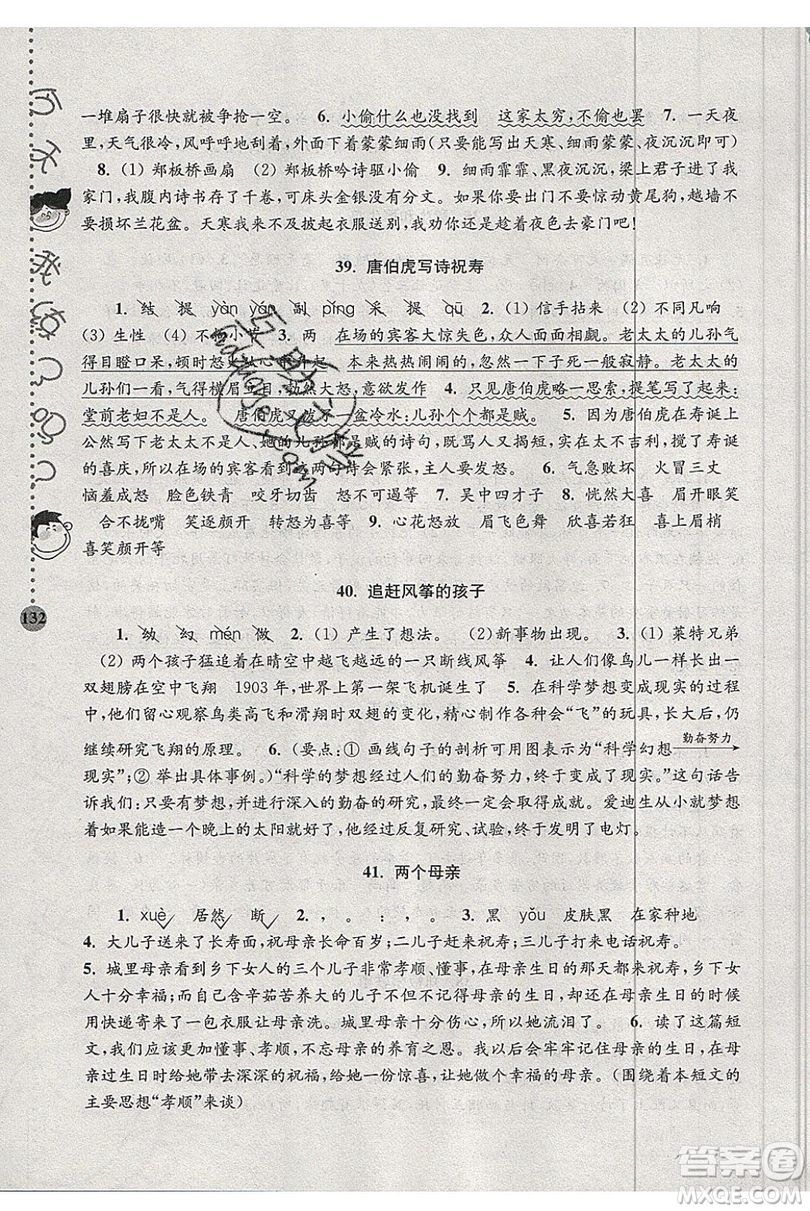 一堆扇子很快就被争抢一空。 6. 小偷什么也没找到 这家太穷,不偷也罢 7. 一天夜
里,天气很冷,风呼呼地刮着,外面下着蒙蒙细雨(只要能写出天寒、细雨蒙蒙、夜沉沉即可)
8. (1) 郑板桥画扇 (2) 郑板桥吟诗驱小偷 9. 细雨霏霏、黑夜沉沉,梁上君子进了我
家门,我腹内诗书存了千卷,可床头金银没有分文。如果你要出门不要惊动黄尾狗,越墙不
要损坏兰花盆。天寒我来不及披起衣服送别,我劝你还是趁着夜色去豪门吧!
39. 唐伯虎写诗祝寿
1. 结 提 yàn yán 副 pīng 采 提 qū 2. (1) 信手拈来 (2) 不同凡响
(3) 生性 (4) 不拘小节 3. 两 在场的宾客大惊失色,众人面面相觑。老太太的儿孙气
得目瞪口呆,顿时怒从心头升起 本来热热闹闹的,一下子死一般寂静。老太太的
儿孙们一看,气得横眉立目,勃然大怒,意欲发作 4. 只见唐伯虎略一思索,提笔写了起来:
堂前老妇不是人。 唐伯虎又泼下一盆冷水:儿孙个个都是贼。 5. 因为唐伯虎在寿诞上
公然写了老太太不是人,她的儿孙都是贼的诗句,既骂人又揭短,实在不吉利,搅了寿诞
的喜庆,所以在场的宾客看到这两句诗会紧张,主人会大怒。 6. 气急败坏 火冒三丈
恼羞成怒 脸色铁青 咬牙切齿 怒不可遏等 7. 吴中四才子 8. 恍然大喜 眉开眼笑
合不拢嘴 笑逐颜开 转怒为喜等 9. 心花怒放 眉飞色舞 欣喜若狂 喜上眉梢
喜笑颜开等
40. 追赶风筝的孩子
132
1. 幼 幻 mén 做 2. (1) 产生了想法。 (2) 新事物出现。 3. (1) 莱特兄弟
(2) 两个孩子猛追着在晴空中越飞越远的一只断线风筝 4. 让人们像鸟儿一样长出一
双翅膀在空中飞翔 1903年,世界上第一架飞机诞生了 5. 在科学梦想变成现实的过程
中,他们留心观察鸟类高飞和滑翔时双翅的变化,精心制作各种会“飞”的玩具,长大后,仍
继续研究飞翔的原理。 6. (要点:① 画线句子的剖析可用图表示为“科学幻想 勤奋努力
现实”;② 举出具体事例。)“科学的梦想经过人们的勤奋努力,终于变成了现实。”这句话告
诉我们:只要有梦想,并进行深入的勤奋的研究,最终一定会取得成就。爱迪生从小就梦想
能创造一个晚上的太阳即发光的机器,他经过反复研究、试验,终于发明了电灯。
41. 两个母亲
1. xuè 居然 断 2. , 。 : , 。 3. 黑 yǒu 皮肤黑 在家种地
4. 大儿子送来了长寿面,祝母亲长命百岁;二儿子赶来祝寿;三儿子打来电话祝寿。
5. 城里母亲认为乡下女人的三个儿子非常孝顺、懂事,在母亲生日的日子赶来祝寿,乡下女
人十分幸福;而自己含辛茹苦养大的儿子却根本不懂事,不仅没有记住母亲的生日,在母亲
生日的时候还送来了一包衣服让母亲洗。城里母亲十分伤心,所以她流泪了。 6. 读了这篇短
文,我们应该更加懂事、孝顺,不忘母亲的养育之恩。我以后会牢牢记住母亲的生日,在母亲
过生日时给她送去深深的祝福,给她一份惊喜,让她做一个幸福的母亲。(围绕着本短文的
主要思想“孝顺”来谈)
答案圈
MXQE.COM